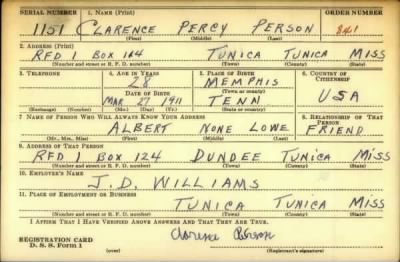 SERIAL NUMBER 1. NAME (Print) ORDER NUMBER
1151 CLARENCE PERCY PERSON 841
(First) (Middle) (Last)
2. ADDRESS (Print)
RFD 1 BOX 164 TUNICA TUNICA MISS
(Number and street or R. F. D. number) (Town) (County) (State)
3. TELEPHONE 4. AGE IN YEARS 5. PLACE OF BIRTH 6. COUNTRY OF CITIZENSHIP
28 MEMPHIS
DATE OF BIRTH (Town or county)
MAR 27 1911 TENN USA
(Exchange) (Number) (Mo.) (Day) (Yr.) (State or country)
7. NAME OF PERSON WHO WILL ALWAYS KNOW YOUR ADDRESS 8. RELATIONSHIP OF THAT PERSON
ALBERT NONE LOWE FRIEND
(Mr., Mrs., Miss) (First) (Middle) (Last)
9. ADDRESS OF THAT PERSON
RFD 1 BOX 124 DUNDEE TUNICA MISS
(Number and street or R. F. D. number) (Town) (County) (State)
10. EMPLOYER'S NAME
J.D. WILLIAMS
11. PLACE OF EMPLOYMENT OR BUSINESS
TUNICA TUNICA MISS
(Number and street or R. F. D. number) (Town) (County) (State)
I AFFIRM THAT I HAVE VERIFIED ABOVE ANSWERS AND THAT THEY ARE TRUE.
REGISTRATION CARD Clarence Person
D. S. S. Form 1 (over) (Registrant's signature)